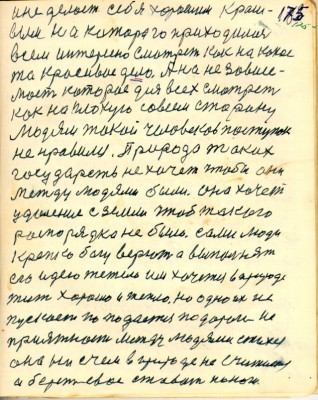 175
ине делает себя хорошим краси-
вым на которого приходился
всем интересно смотреть как на какое
та красивое дело. А на не завис-
мость которое для всех смотрет
как на плохую совсем старану
людям такой человеков поступок
не нравился. Природа таких
государств не хочет чтобы они
между людями были. она хочет
удаление с земли чтоб такого
распорядка не было. сами люди
крепко богу верют а выполнят
его идею тежело им хочется в природе
жит хорошо и тепло, но одно их не
приятности между людями
она ни с чем в природе не
а берет свое ставит